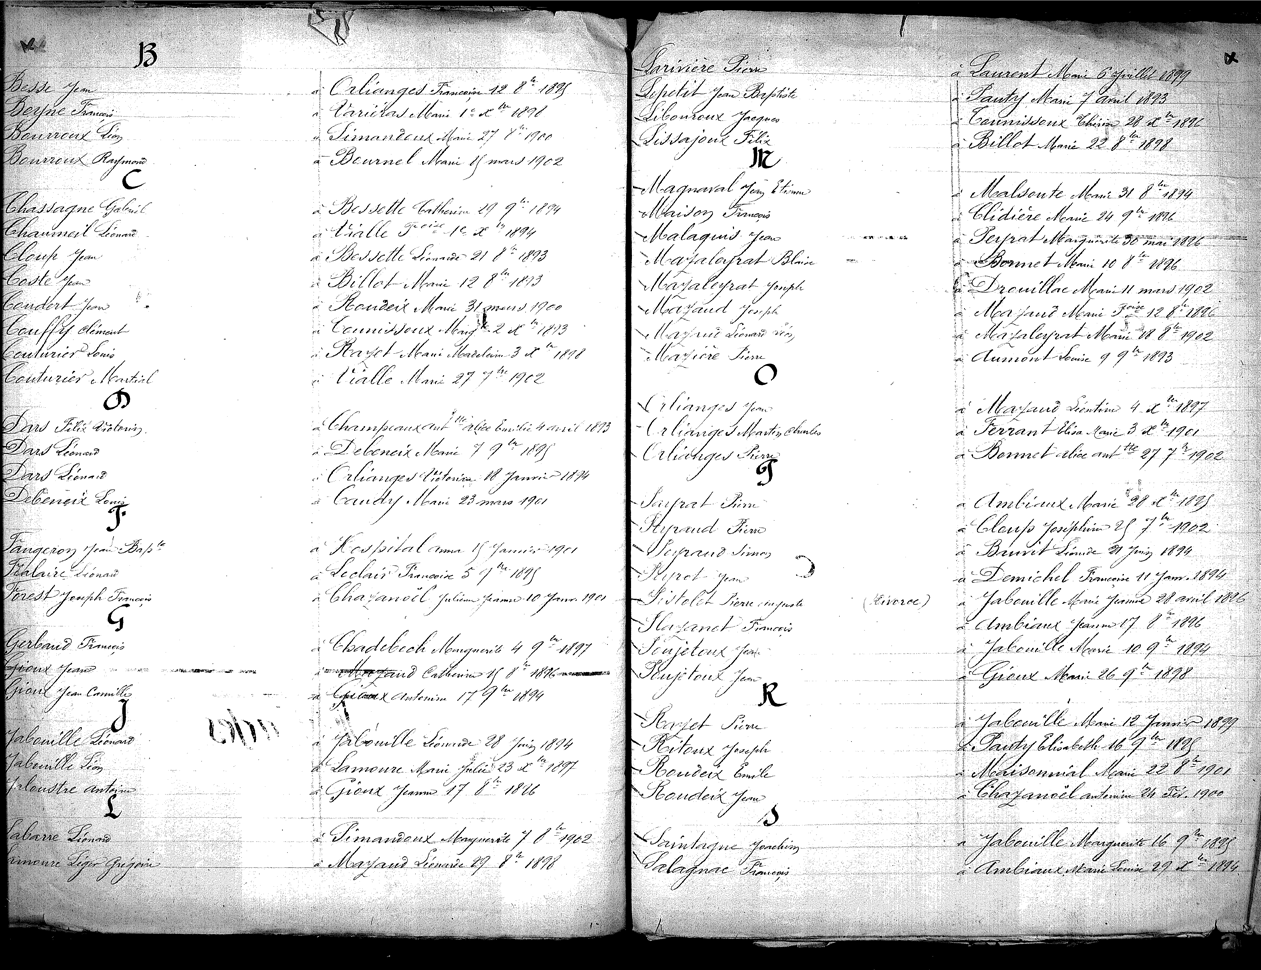 B
Besse Jean à Orlianges Françoise 12 8bre 1895
Beyne François à Varieras Marie 1er Xbre 1896
Bourroux Léon à Simandoux Marie 27 8bre 1900
Bourroux Raymond à Bournel Marie 15 mars 1902
C
Chassagne Gabriel à Bessette Catherine 29 9bre 1894
Chaumeil Léonard à Vialle Fçoise 1er Xbre 1894
Cloup Jean à Bessette Léonarde 21 8bre 1893
Coste Jean à Billot Marie 12 8bre 1893
Coudert Jean à Roudeix Marie 31 mars 1900
Couffy Clément à Counissoux 2 Xbre 1893
Couturier Louis à Razet Marie Madeleine 3 Xbre 1898
Couturier Martial à Vialle Marie 27 7bre 1902
D
Dars Félix Victorin à Champeaux antte alice Emilie 4 avril 1893
Dars Léonard à Debeneix Marie 7 9bre 1895
Dars Léonard à Orlianges Victorine 18 Janvier 1894
Debeneix Louis à Coudry Marie 23 mars 1901
F
Fangeron Jean Bapte à Hospital anna 15 Janvier 1901
Falaire Léonard à Leclair Françoise 5 9bre 1895
Forest Joseph François à Chazanoël Julienne Jeanne 10 Janv. 1901
G
Gerbaud François à Chadebech Marguerite 4 9bre 1897
Gioux Jean à Mazaud Catherine 15 8bre 1896
Gioux Jean Camille à Gioux Antonine 17 9bre 1894
J
Jabouille Léonard à Jabouille Léonarde 28 Juin 1894
Jabouille Léon à Lamoure Marie Julie 23 Xbre 1897
Jaloustre antoine à Gioux Jeanne 17 8bre 1896
L
Labarre Léonard à Simandoux Marguerite 7 8bre 1902
Lamoure Léger Grégoire à Mazaud Léonarde 29 8bre 1898
Larivière Pierre à Laurent Marie 6 Juillet 1899
Lepetit Jean Baptiste à Pauty Marie 7 avril 1893
Liboureux Jacques à Counissoux Thérèse 28 Xbre 1896
Lissajoux Félix à Billot Marie 22 8bre 1898
M
Magnaval Jean Etienne à Malsoute Marie 31 8bre 1894
Maison François à Clidière Marie 24 9bre 1896
Malaquis Jean à Peyrat Marguerite 30 mai 1896
Mazaleyrat Blaise à Bonnet Marie 10 8bre 1896
Mazaleyrat Joseph à Drouillac Marie 11 mars 1902
Mazaud Joseph à Mazaud Marie Fçoise 12 8bre 1896
Mazaud Léonard Léon à Mazaleyrat Marie 18 8bre 1902
Mazière Pierre à Aumont Louise 9 9bre 1893
O
Orlianges Jean à Mazaud Léontine 4 Xbre 1897
Orlianges Martin Charles à Ferrant Elisa Marie 3 Xbre 1901
Orlianges Pierre à Bonnet alice antte 27 7bre 1902
P
Peyrat Pierre à Ambiaux Marie 28 Xbre 1895
Peyraud Pierre à Cloup Joséphine 25 7bre 1902
Peyraud Simon à Léonide 21 Juin 1894
Peyrot Jean à Demichel Françoise 11 Janv. 1894
Pistolet Pierre auguste (Divorce) à Jabouille Marie Jeanne 28 avril 1896
Plazanet François à Ambiaux Jeanne 17 8bre 1896
Poujetoux Jean à Jabouille Marie 10 9bre 1894
Poujetoux Jean à Gioux Marie 26 9bre 1898
R
Razet Pierre à Jabouille Marie 12 Janvier 1899
Ritoux Joseph à Pauty Elisabeth 16 9bre 1895
Roudeix Emile à Maisonnial Marie 22 8bre 1901
Roudeix Jean à Chazanoël antonine 24 Fév. 1900
S
Saintagne Joachim à Jabouille Marguerite 16 9bre 1895
Salagnac François à Ambiaux Marie Louise 29 Xbre 1894